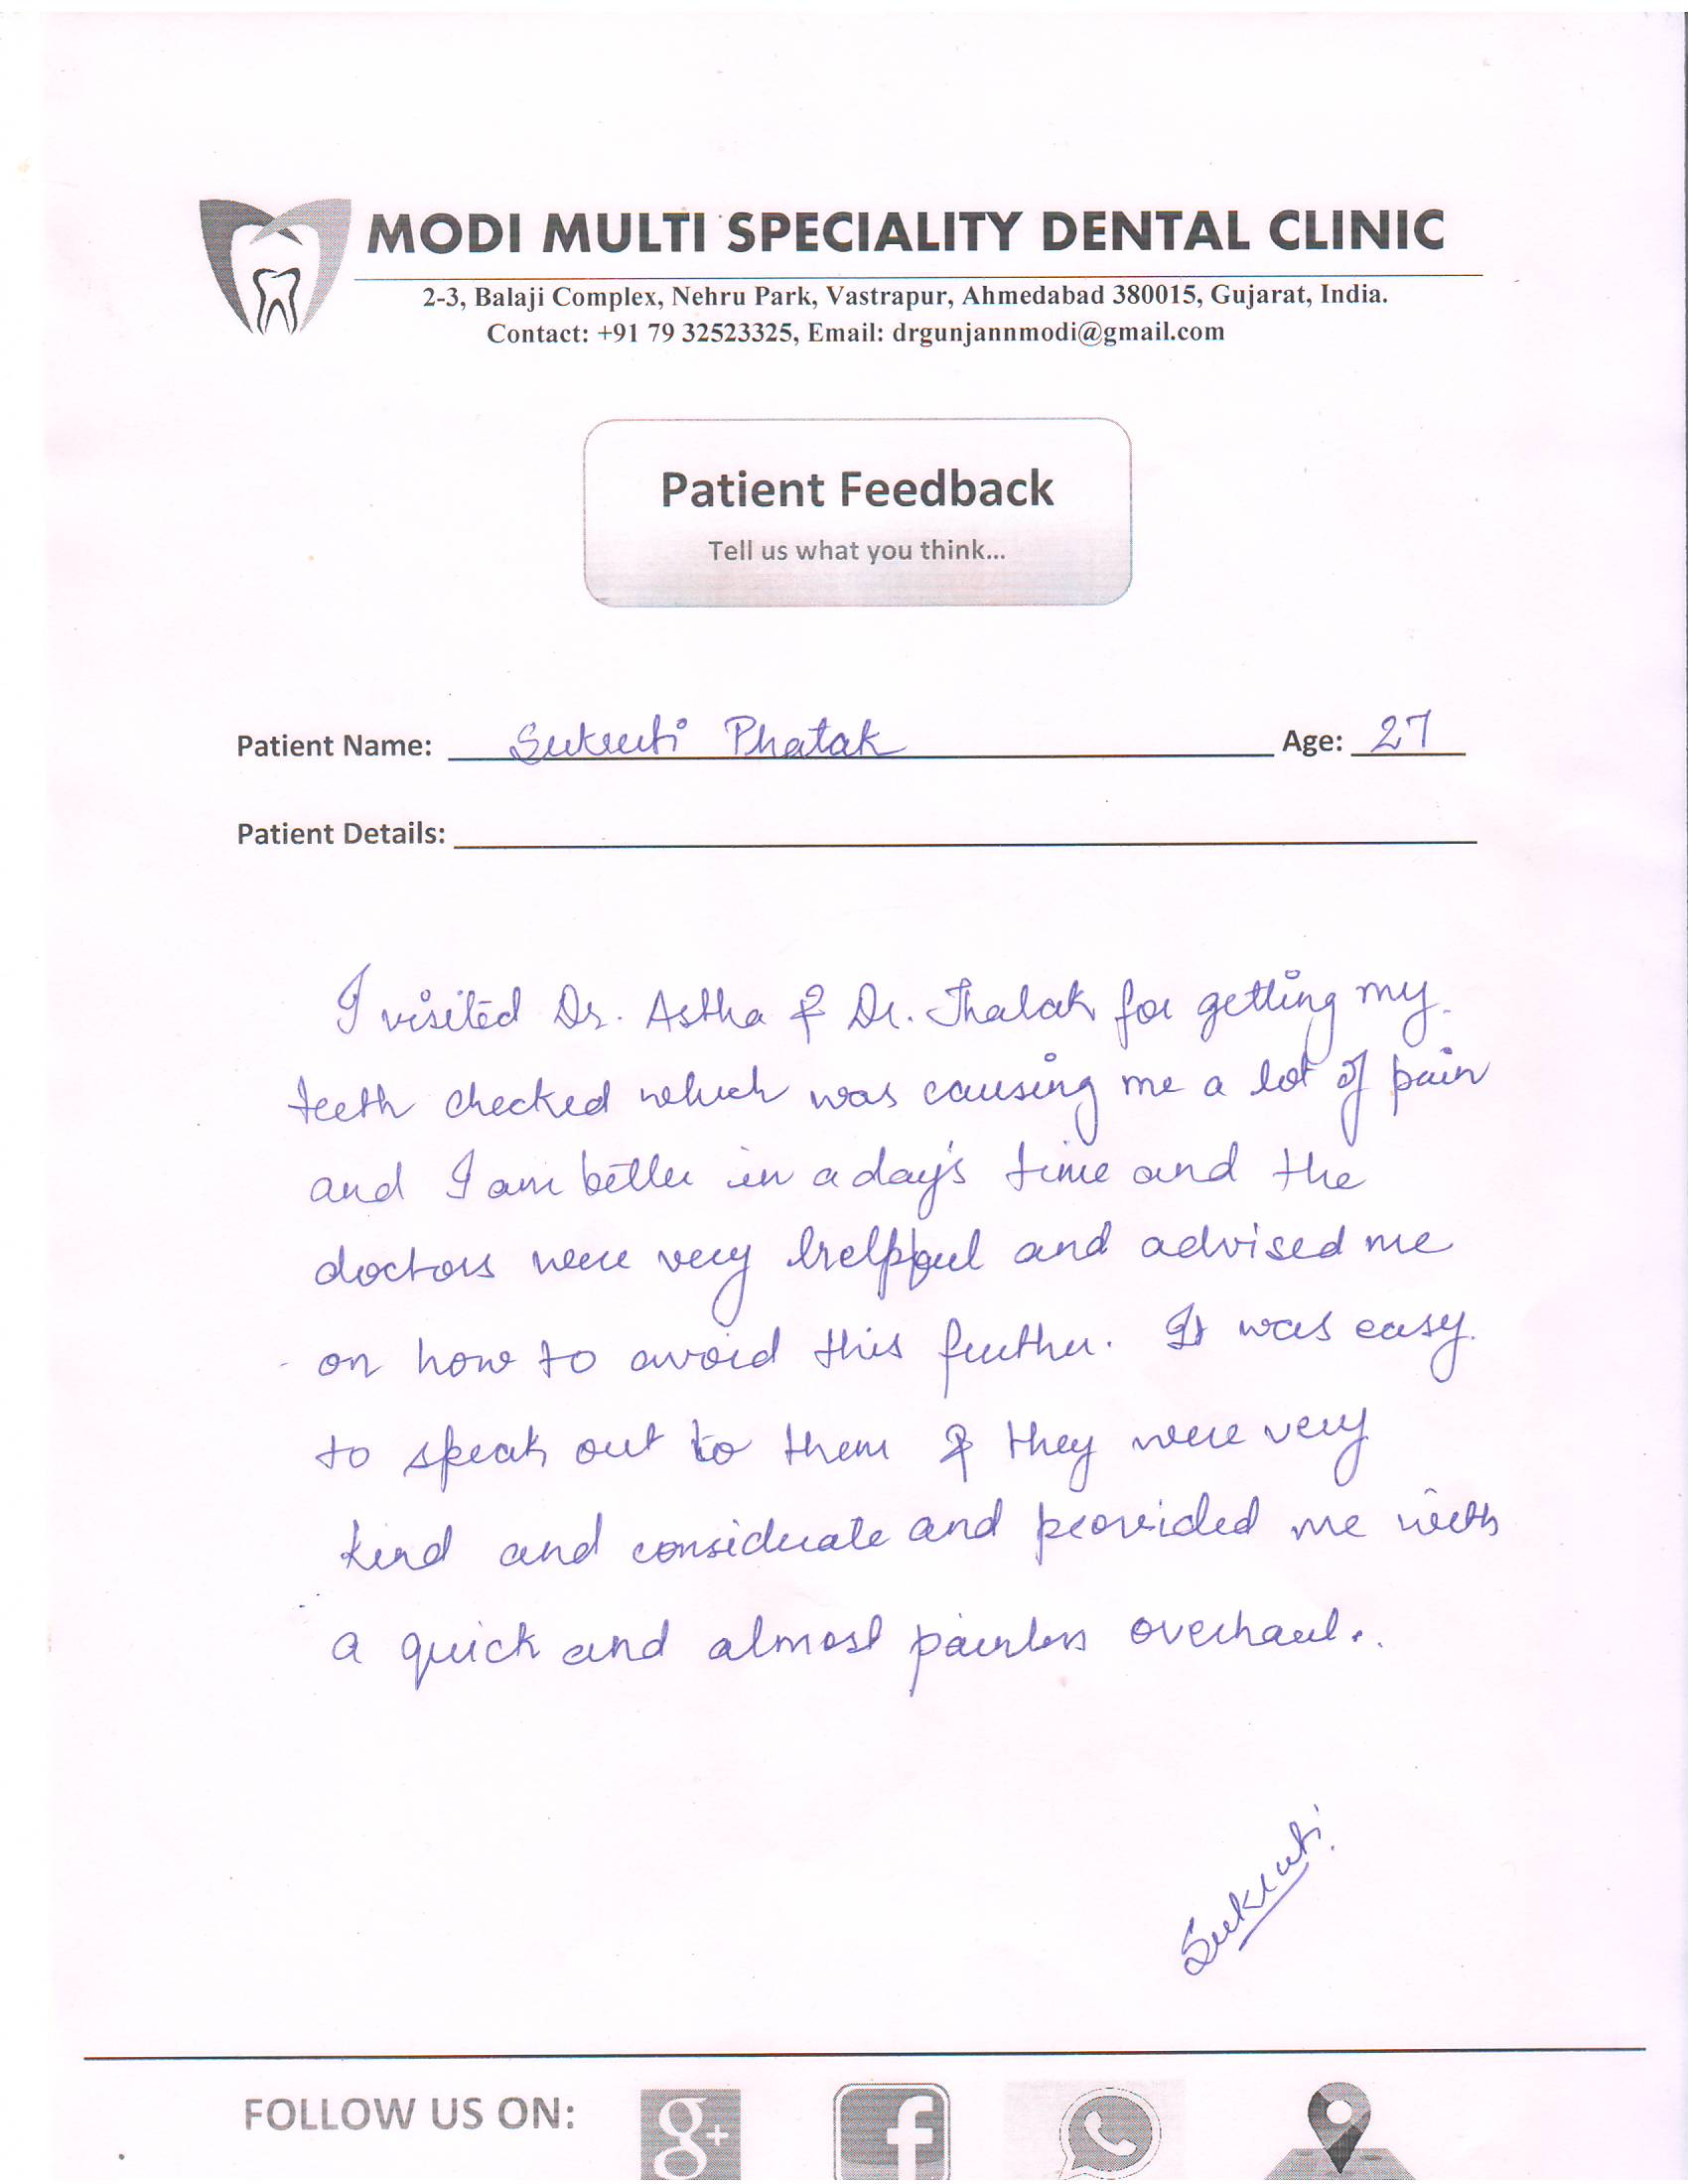 MODI MULTI SPECIALITY DENTAL CLINIC
2-3, Balaji Complex, Nehru Park, Vastrapur, Ahmedabad 380015, Gujarat, India.
Contact: +91 79 32523325, Email: drgunjannmodi@gmail.com
Patient Feedback
Tell us what you think...
Patient Name: Sukruti Phatak Age: 27
Patient Details:
I visited Dr. Astha & Dr. Jhalak for getting my
teeth checked which was causing me a lot of pain
and I am better in a day's time and the
doctors were very helpful and advised me
on how to avoid this further. It was easy
to speak out to them & they were very
kind and considerate and provided me with
a quick and almost painless overhaul..
Sukruti
FOLLOW US ON:
g+
f